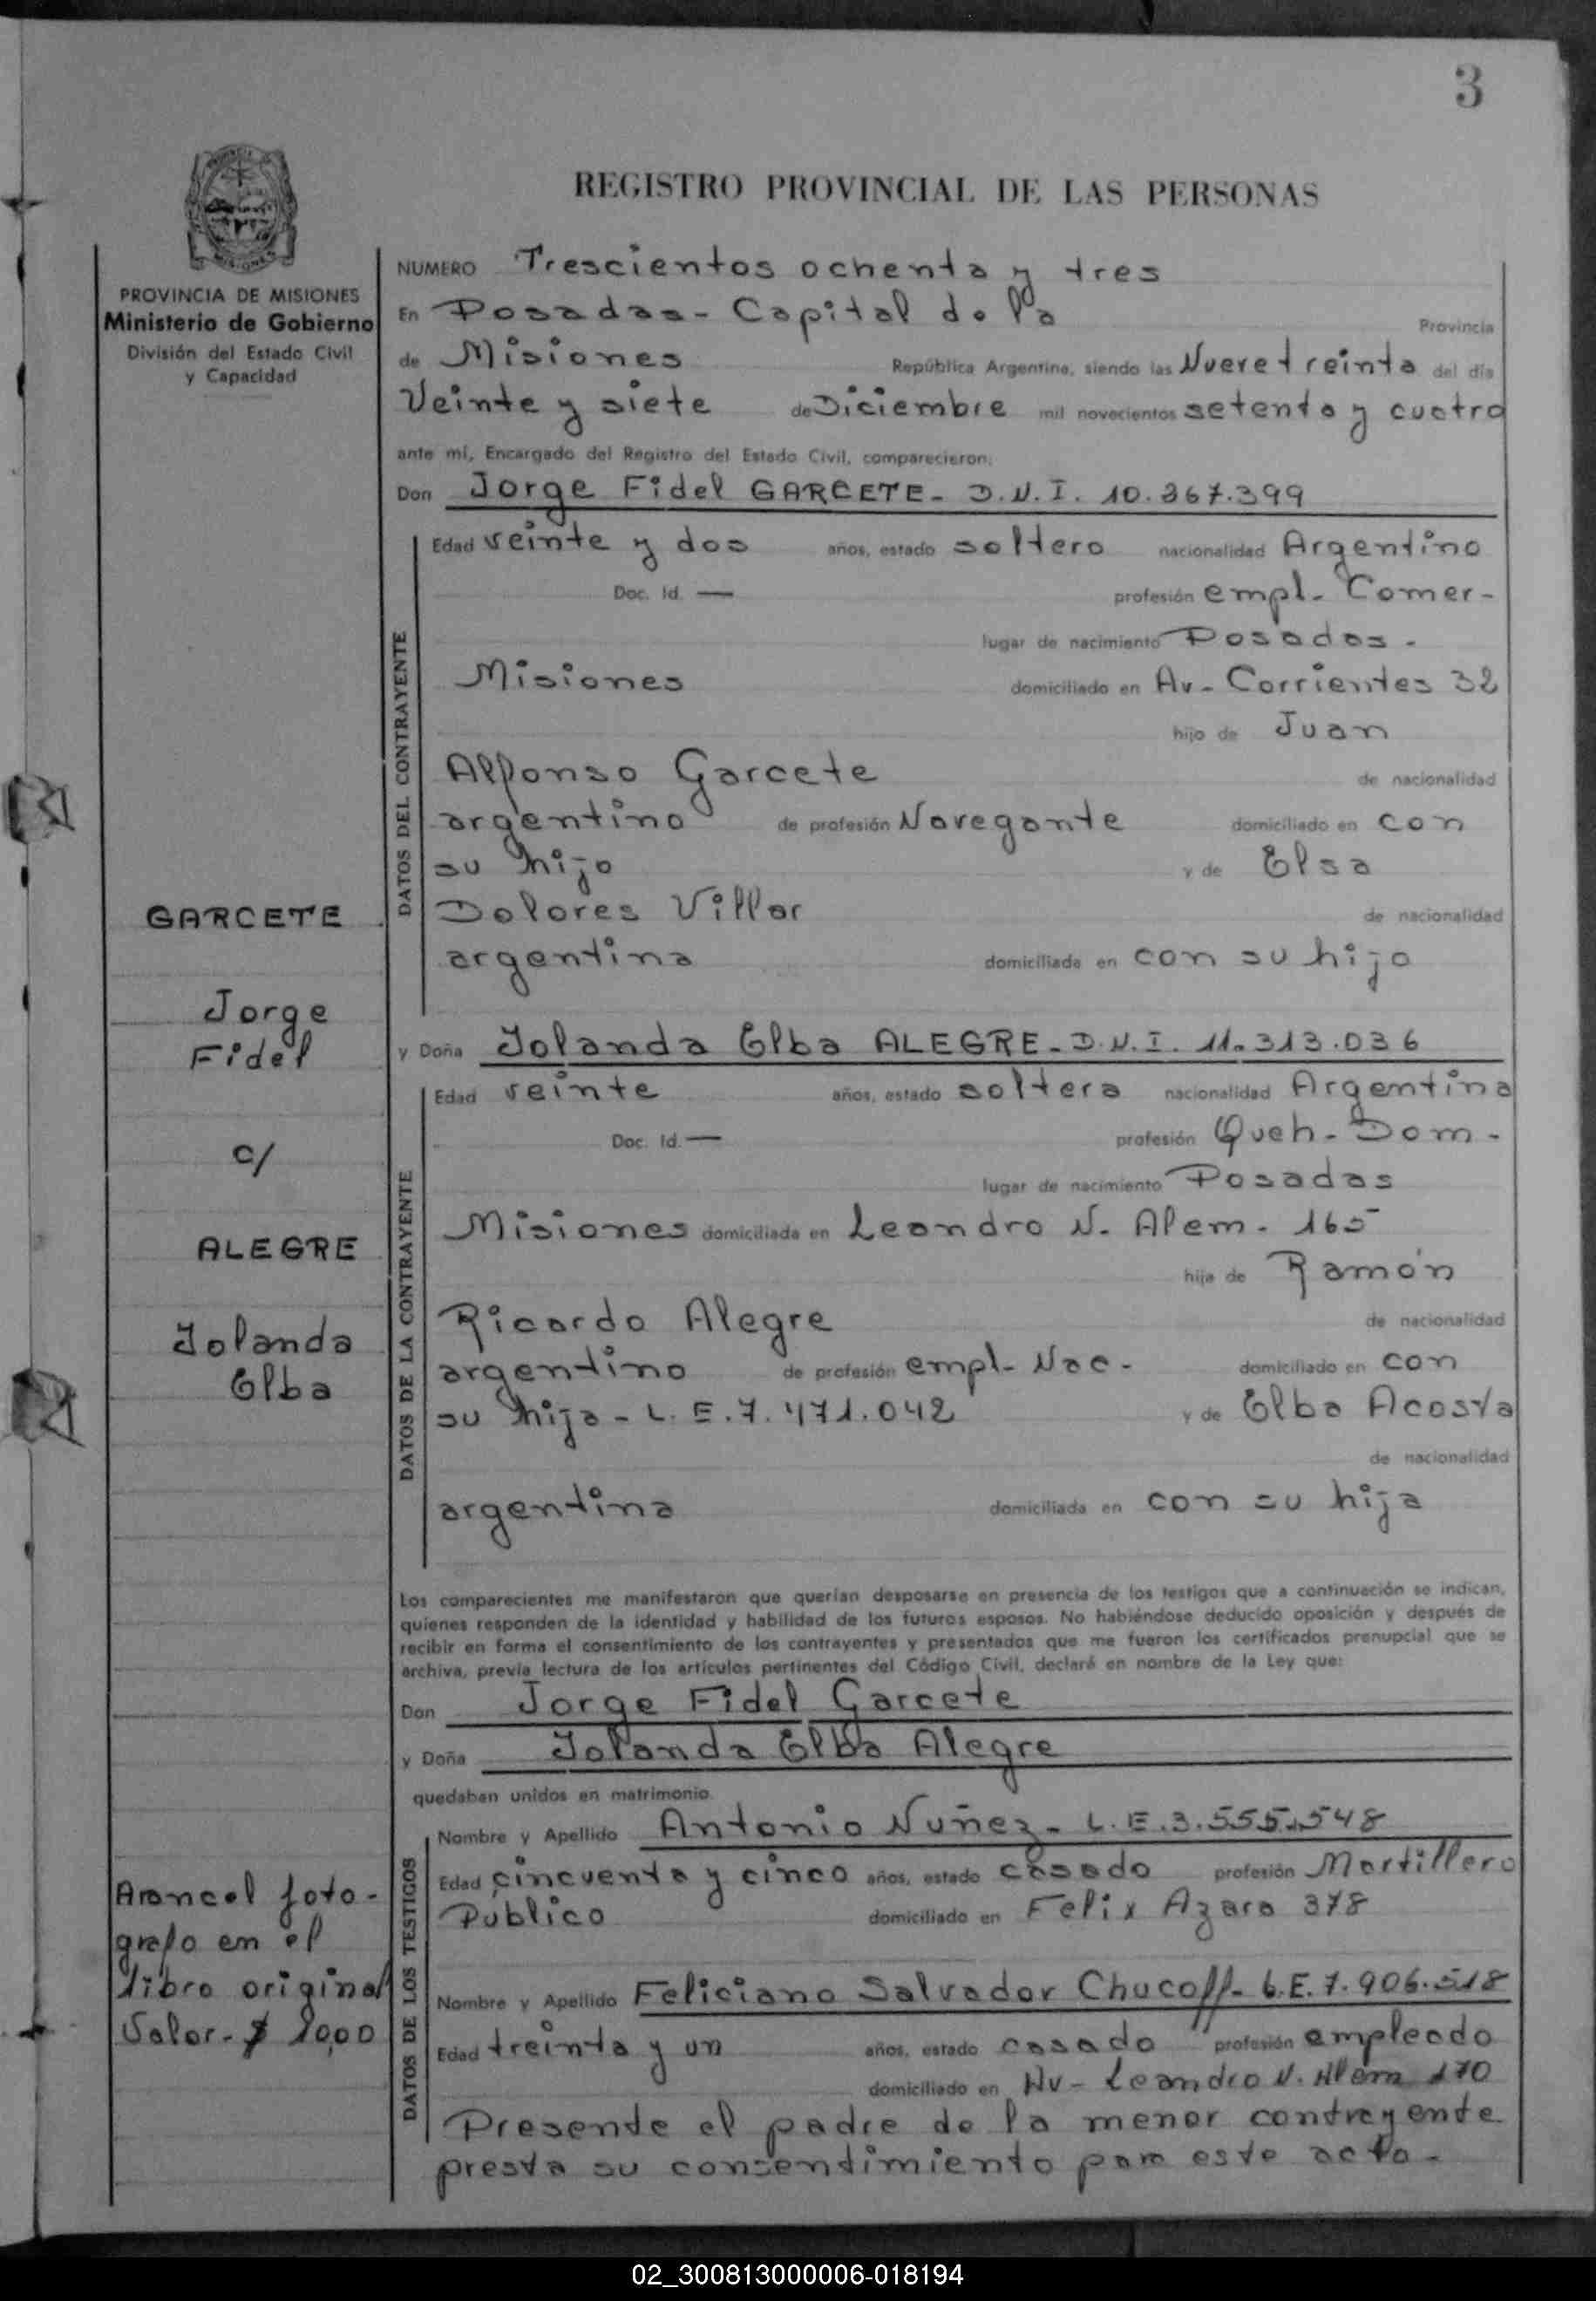 3
REGISTRO PROVINCIAL DE LAS PERSONAS
PROVINCIA DE MISIONES
Ministerio de Gobierno
División del Estado Civil
y Capacidad
NUMERO Trescientos ochenta y tres
En Posadas - Capital de la Provincia
de Misiones República Argentina, siendo las Nueve treinta del día
Veinte y siete de Diciembre mil novecientos setenta y cuatro
ante mí, Encargado del Registro del Estado Civil, comparecieron:
Don Jorge Fidel GARCETE - D.N.I. 10.367.399
DATOS DEL CONTRAYENTE
Edad veinte y dos años, estado soltero nacionalidad Argentino
Doc. Id. — profesión empl. Comer-
lugar de nacimiento Posadas -
Misiones domiciliado en Av. Corrientes 32
hijo de Juan
Alfonso Garcete de nacionalidad
argentino de profesión Navegante domiciliado en con
su hijo y de Elsa
Dolores Villar de nacionalidad
argentina domiciliada en con su hijo
GARCETE
Jorge
Fidel
c/
ALEGRE
Iolanda
Elba
y Doña Iolanda Elba ALEGRE - D.N.I. 11.313.036
DATOS DE LA CONTRAYENTE
Edad veinte años, estado soltera nacionalidad Argentina
Doc. Id. — profesión Queh. Dom -
lugar de nacimiento Posadas
Misiones domiciliada en Leandro N. Alem - 165
hija de Ramón
Ricardo Alegre de nacionalidad
argentino de profesión empl. Nac - domiciliado en con
su hija - L.E.7.471.042 y de Elba Acosta
de nacionalidad
argentina domiciliada en con su hija
Los comparecientes me manifestaron que querían desposarse en presencia de los testigos que a continuación se indican,
quienes responden de la identidad y habilidad de los futuros esposos. No habiéndose deducido oposición y después de
recibir en forma el consentimiento de los contrayentes y presentados que me fueron los certificados prenupcial que se
archiva, previa lectura de los artículos pertinentes del Código Civil, declaré en nombre de la Ley que:
Don Jorge Fidel Garcete
y Doña Iolanda Elba Alegre
quedaban unidos en matrimonio.
DATOS DE LOS TESTIGOS
Nombre y Apellido Antonio Nuñez - L.E.3.555.548
Edad cincuenta y cinco años, estado casado profesión Martillero
Publico domiciliado en Felix Azara 378
Nombre y Apellido Feliciano Salvador Chucoff - L.E.7.906.518
Edad treinta y un años, estado casado profesión empleado
domiciliado en Av - Leandro N. Alem 170
Presente el padre de la menor contrayente
presta su consentimiento para este acto -
Arancel foto-
grafo en el
libro original
Valor - $ 10,00
02_300813000006-018194